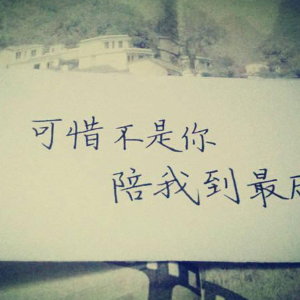 可惜不是你
陪我到最